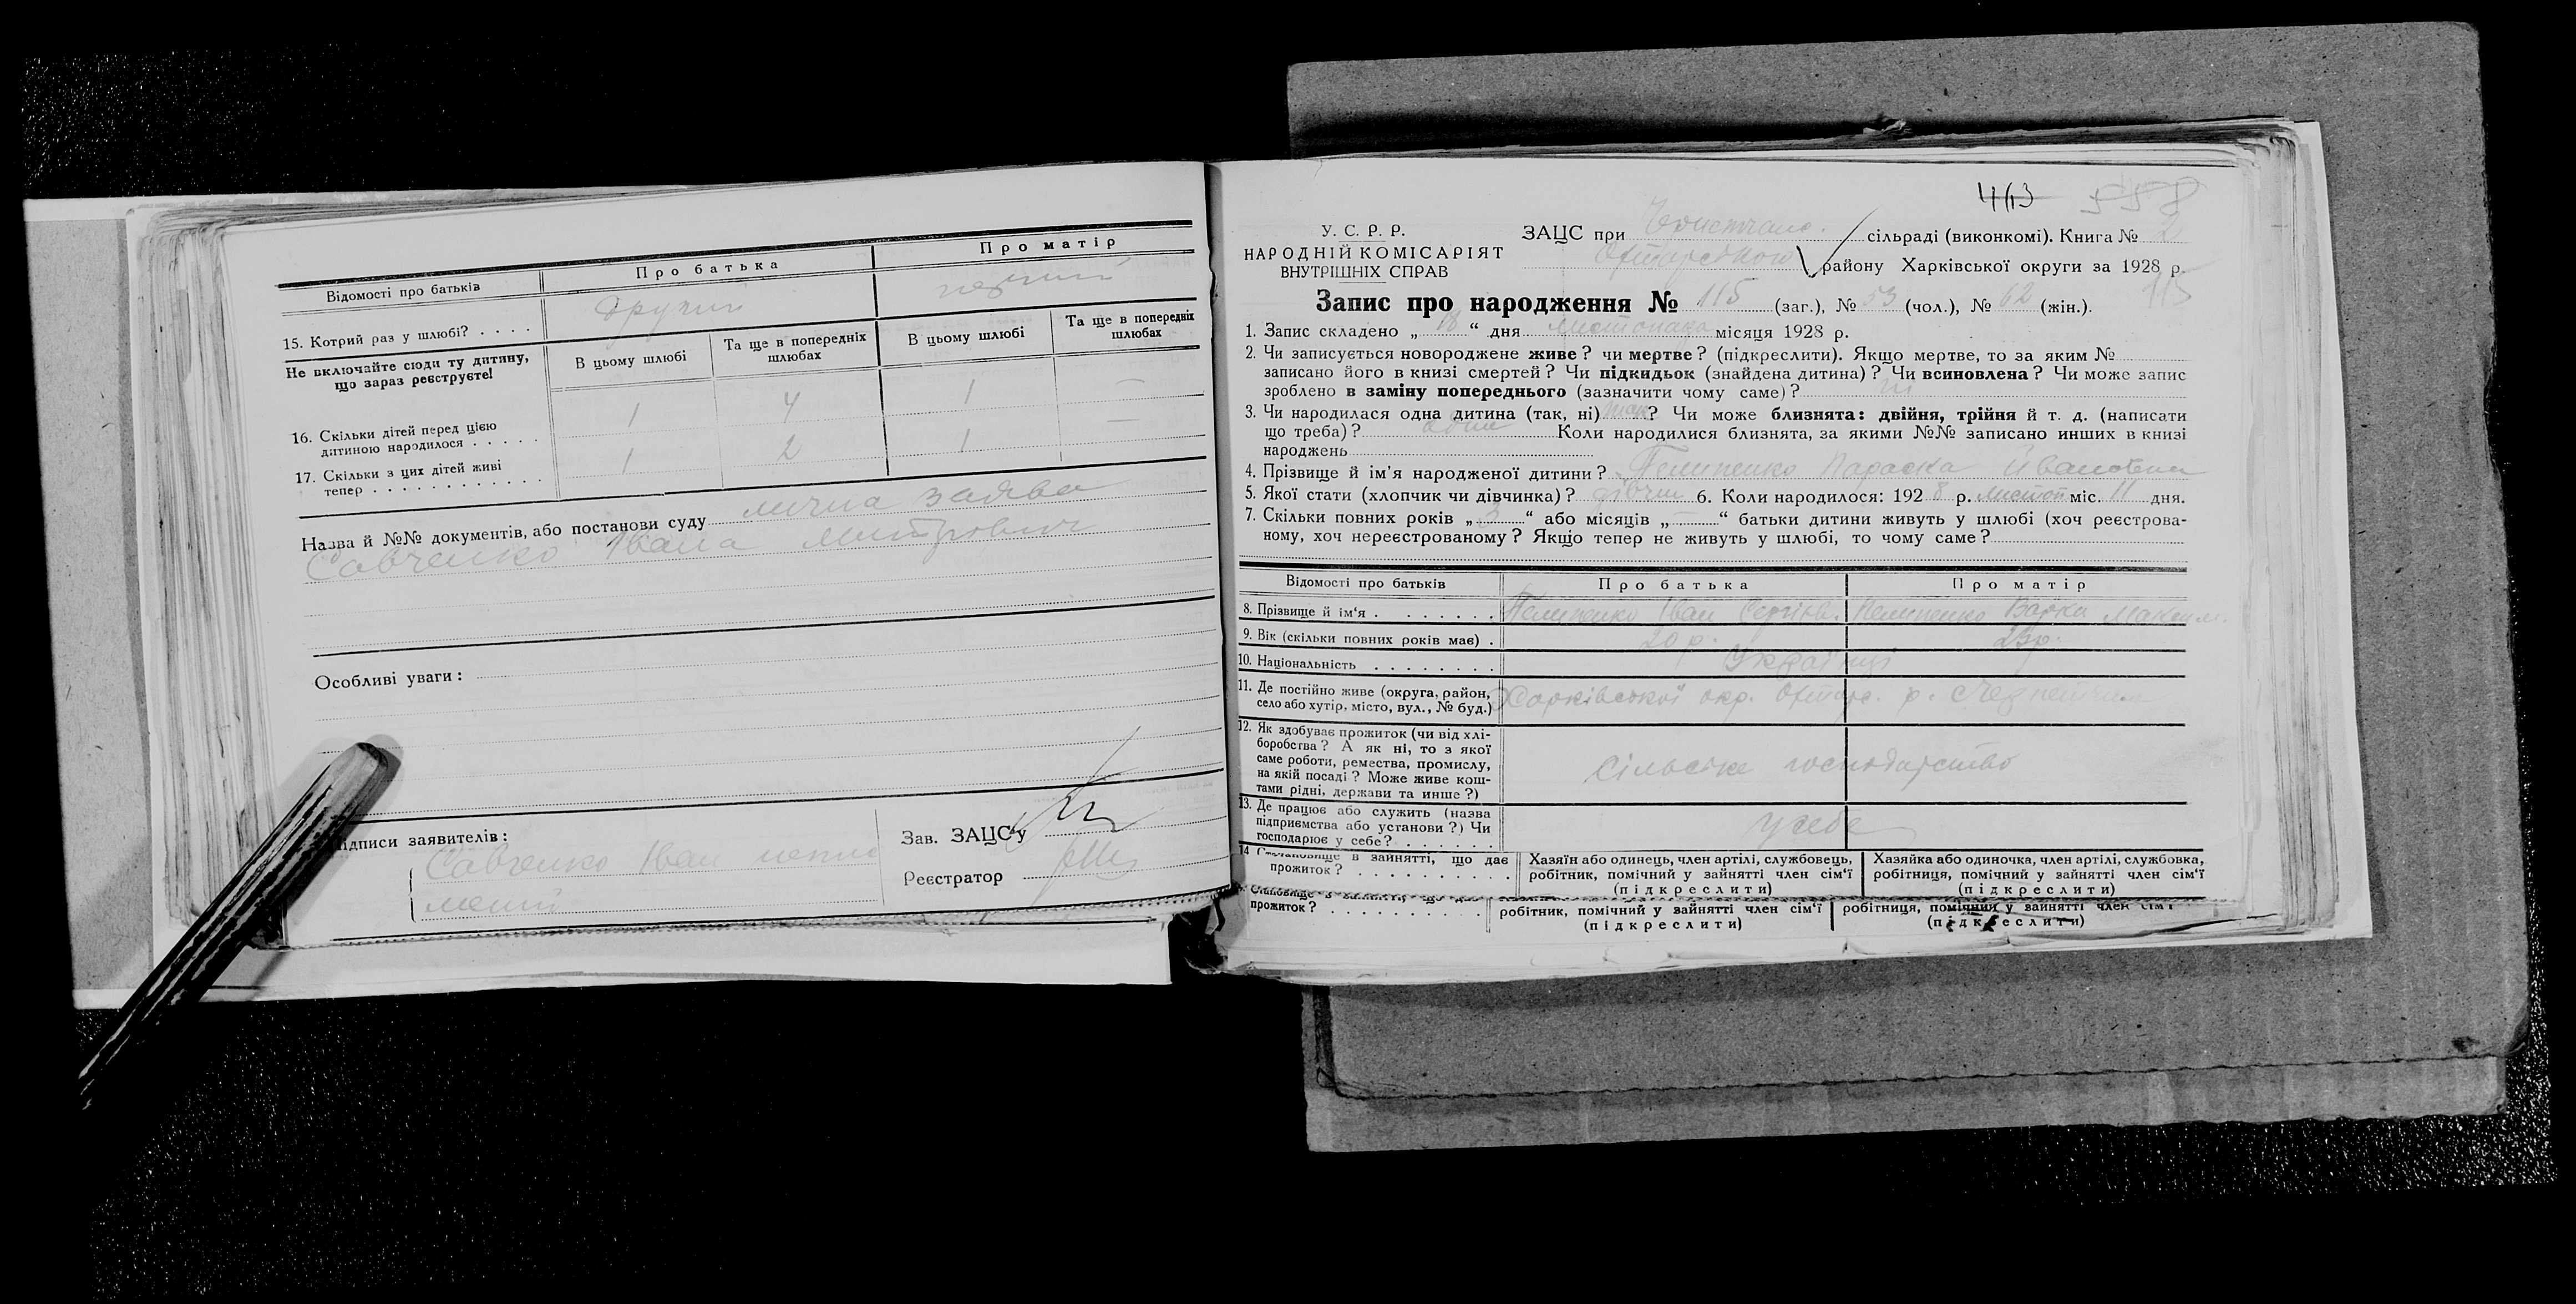 Відомості про батьків
Про батька
Про матір
15. Котрий раз у шлюбі? . . . .
другий
перший
Не включайте сюди ту дитину, що зараз реєструєте!
В цьому шлюбі
Та ще в попередніх шлюбах
В цьому шлюбі
Та ще в попередніх шлюбах
16. Скільки дітей перед цією
дитиною народилося . . . . .
1 4 1 —
17. Скільки з цих дітей живі
тепер . . . . . . . . . . . .
1 2 1 —
Назва й №№ документів, або постанови суду лична заява
Савченко Івана Митрович
Особливі уваги:
ідписи заявителів:
Савченко Іван
Зав. ЗАЦС'у
Реєстратор
443 558
У. С. Р. Р.
НАРОДНІЙ КОМІСАРІЯТ
ВНУТРІШНІХ СПРАВ
ЗАЦС при сільраді (виконкомі). Книга № 2
району Харківської округи за 1928 р.
115
Запис про народження № 115 (заг.), № 53 (чол.), № 62 (жін.).
1. Запис складено „ 18 “ дня листопада місяця 1928 р.
2. Чи записується новороджене живе? чи мертве? (підкреслити). Якщо мертве, то за яким №
записано його в книзі смертей? Чи підкидьок (знайдена дитина)? Чи всиновлена? Чи може запис
зроблено в заміну попереднього (зазначити чому саме)? ні
3. Чи народилася одна дитина (так, ні) так? Чи може близнята: двійня, трійня й т. д. (написати
що треба)? одна Коли народилися близнята, за якими №№ записано инших в книзі
народжень
4. Прізвище й ім'я народженої дитини? Пелипенко Параска Йвановна
5. Якої стати (хлопчик чи дівчинка)? дівчин 6. Коли народилося: 1928 р. листоп міс. 11 дня.
7. Скільки повних років „ 3 “ або місяців „ — “ батьки дитини живуть у шлюбі (хоч реєстрова-
ному, хоч нереєстрованому? Якщо тепер не живуть у шлюбі, то чому саме?
Відомості про батьків
Про батька
Про матір
8. Прізвище й ім'я . . . . . . .
Пелипенко Іван Сергіїв.
Пелипенко Варка Максим.
9. Вік (скільки повних років має) .
20 р.
23 р.
10. Національність . . . . . . . .
Українці
11. Де постійно живе (округа, район,
село або хутір, місто, вул., № буд.)
Харківської окр. р.
12. Як здобуває прожиток (чи від хлі-
боробства? А як ні, то з якої
саме роботи, ремества, промислу,
на якій посаді? Може живе кош-
тами рідні, держави та инше?)
сільське господарство
13. Де працює або служить (назва
підприємства або установи?) Чи
господарює у себе? . . . . . .
у себе
14. Становище в зайнятті, що дає
прожиток? . . . . . . . . . .
Хазяїн або одинець, член артілі, службовець,
робітник, помічний у зайнятті член сім'ї
(підкреслити)
Хазяйка або одиночка, член артілі, службовка,
робітниця, помічний у зайнятті член сім'ї
(підкреслити)
прожиток? . . . . . . . . . .
робітник, помічний у зайнятті член сім'ї
(підкреслити)
робітниця, помічний у зайнятті член сім'ї
(підкреслити)